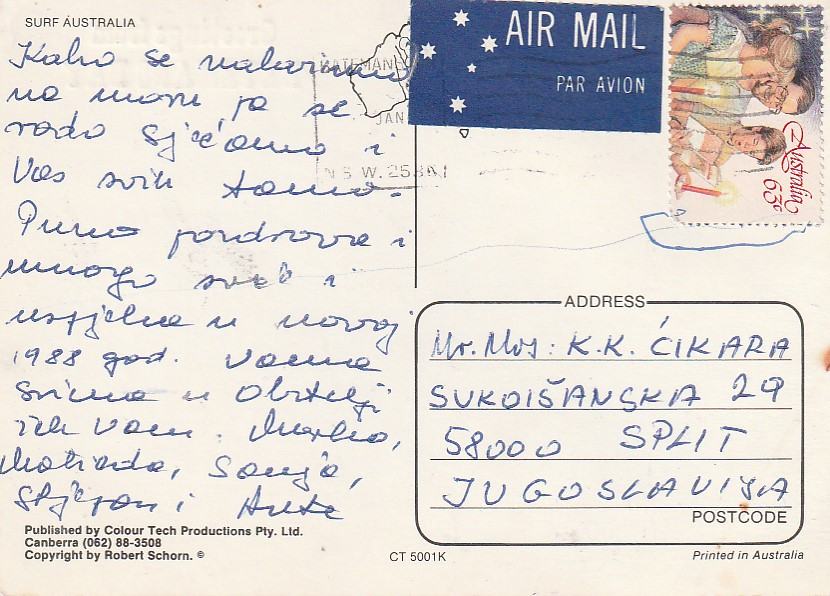 SURF AUSTRALIA
Kako se nalazimo
na moru, pa se
rado sjećamo i
Vas svih tamo.
Puno pozdrava i
mnogo sreće i
uspjeha u novoj
1988 god. Vama
svima u Obitelji
žele Vam. Marko,
Matilda, Sonja,
Stjepan i Ante
Published by Colour Tech Productions Pty. Ltd.
Canberra (062) 88-3508
Copyright by Robert Schorn. ©
CT 5001K
BATEMANS
JAN
N.S.W. 2536
AIR MAIL
PAR AVION
Australia
63c
ADDRESS
Mr. Mrs: K.K. ĆIKARA
SUKOIŠANSKA 29
58000 SPLIT
JUGOSLAVIJA
POSTCODE
Printed in Australia